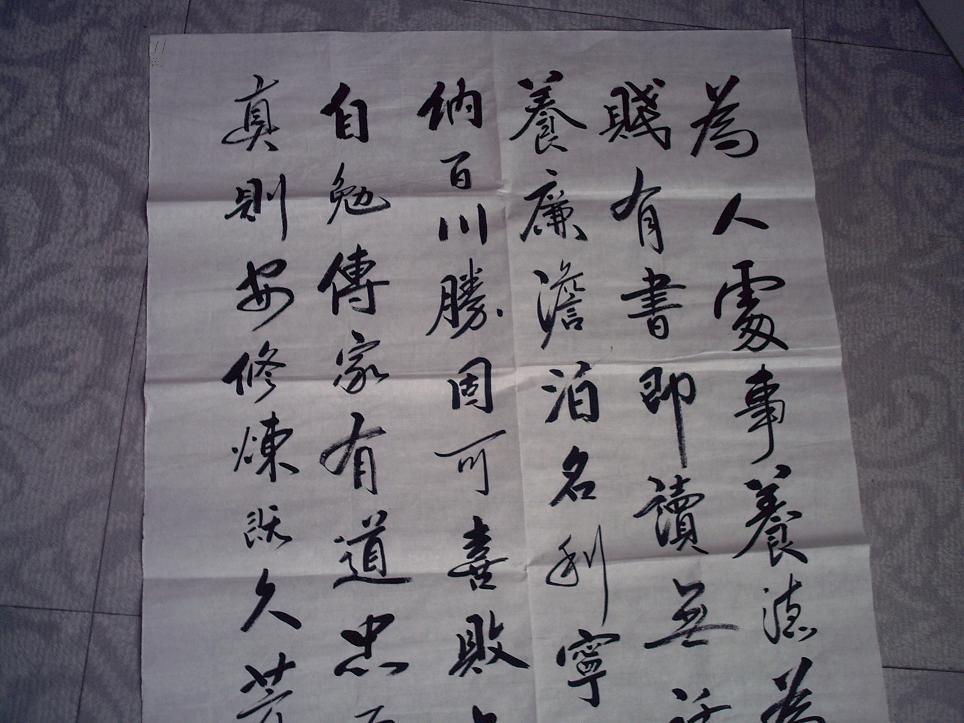 為人處事養德為
賤有書即讀無話
養廉澹泊名利寧
納百川勝固可喜敗
自勉傳家有道忠
真則安修煉既久